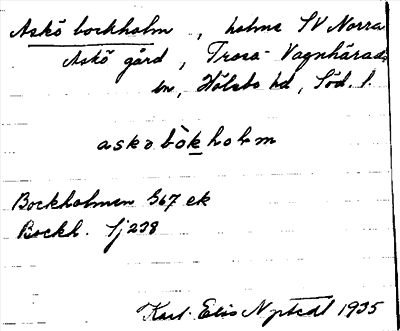 Askö bockholm, holme SV Norra
Askö gård, Trosa-Vagnhärads
sn, Hölebo hd, Söd. l.
asko bòkholm
Bockholmen G67 ek
Bockh. Sj 238
Karl-Elis Nystedt 1935